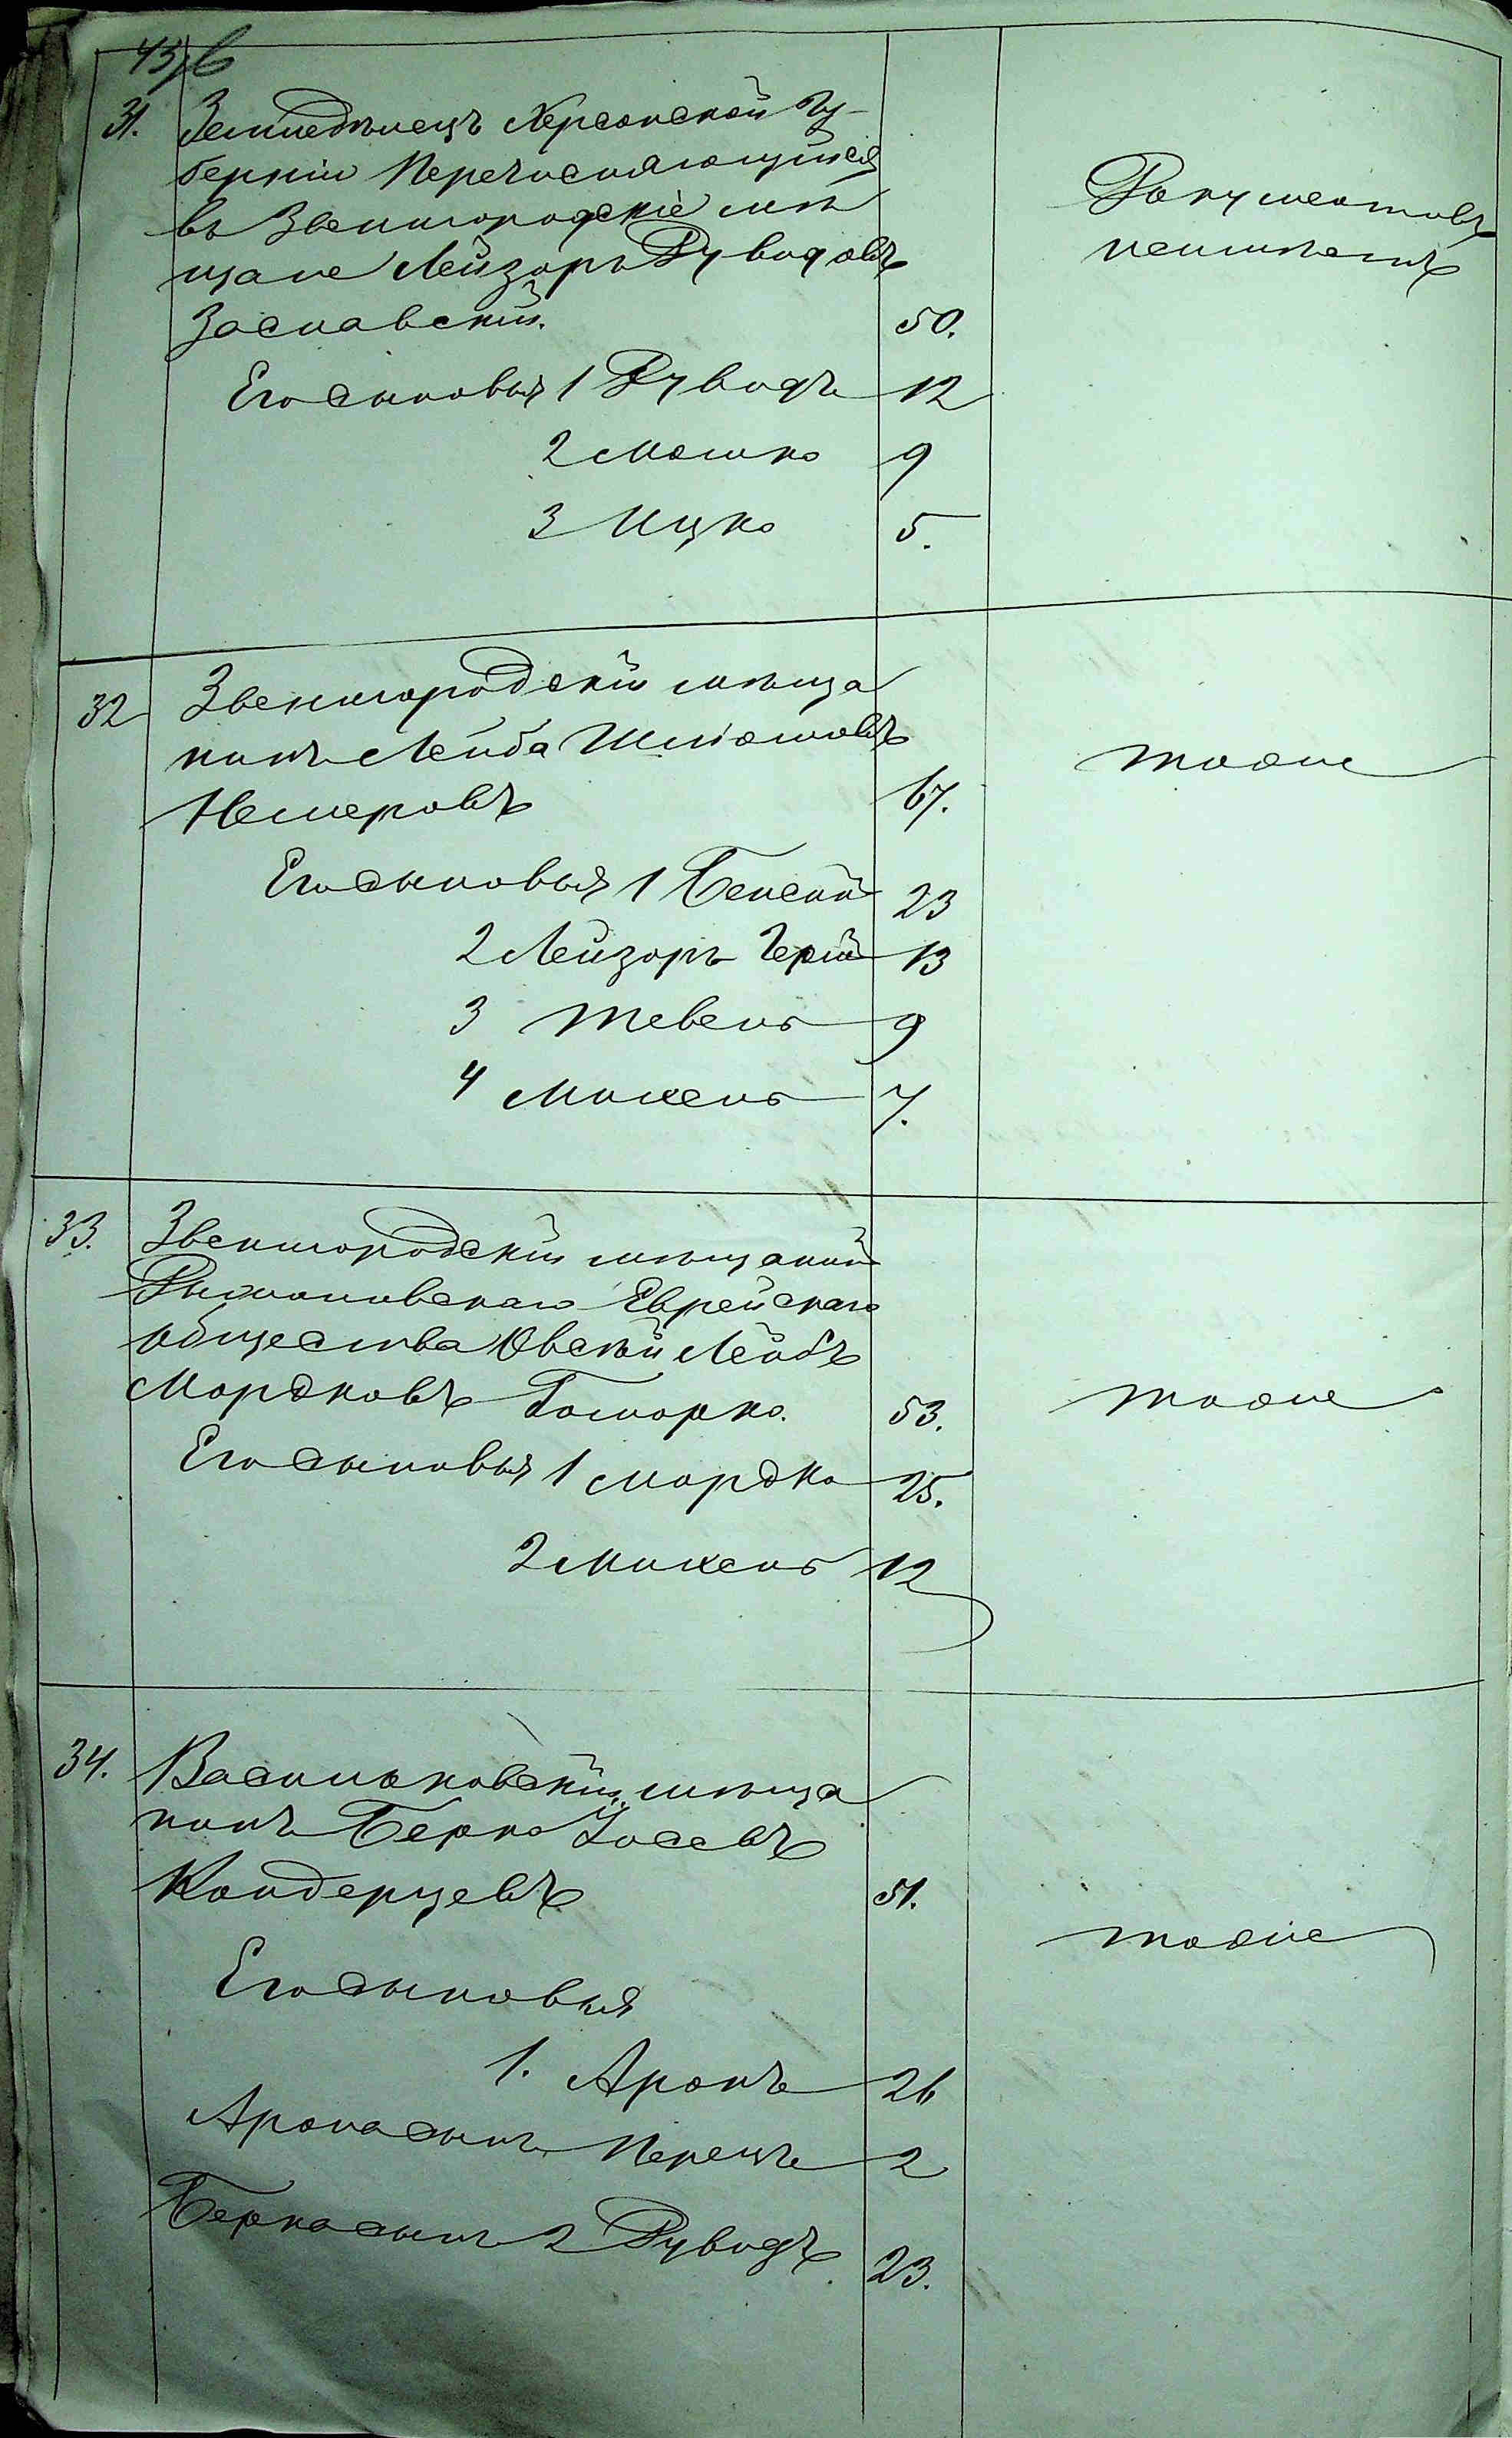 43/6
31. Земледѣлецъ Херсонской Гу-
берніи Перечисляющійся
въ Звенигородскіе мѣ
щане Лейзоръ Дувидовъ
Заславскій. 50.
Документовъ
неимѣетъ
Его сыновья 1 Дувидъ 12
2 Мошко 9
3 Ицко 5.
32 Звенигородскій мѣща
нинъ Лейба Шліомовъ
Немеровъ 67.
тоже
Его сыновья 1 Бенціонъ 23
2 Лейзоръ Герш 13
3 Тевель 9
4 Михель 7.
33. Звенигородскій мѣщанинъ
Рыжановскаго Еврейскаго
общества Овсѣй Лейбъ
Мордковъ Гоморко. 53.
тоже
Его сыновья 1 Мордко 25.
2 Михель 12
34. Васильковскій мѣща
нинъ Берко Іосевъ
Кондерцевъ 51.
тоже
Его сыновья
1. Аронъ 26
Арона сынъ Перецъ 2
Берка сынъ 2 Дувидъ 23.